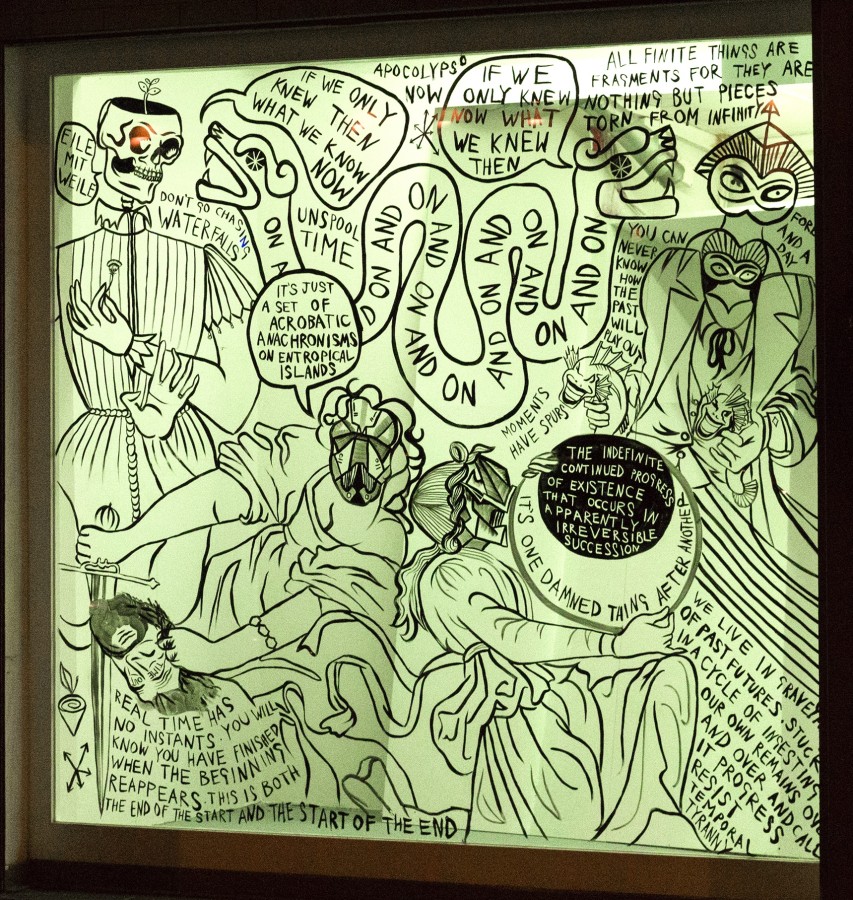 EILE
MIT
WEILE
DON'T GO CHASING
WATERFALLS
IF WE ONLY
KNEW THEN
WHAT WE KNOW
NOW
APOCOLYPSO
NOW
IF WE
ONLY KNEW
NOW WHAT
WE KNEW
THEN
ALL FINITE THINGS ARE
FRAGMENTS FOR THEY ARE
NOTHING BUT PIECES
TORN FROM INFINITY
UNSPOOL
TIME
ON A
D ON AND ON AND ON AND ON AND ON AND ON AND ON AND ON
IT'S JUST
A SET OF
ACROBATIC
ANACHRONISMS
ON ENTROPICAL
ISLANDS
YOU CAN
NEVER
KNOW
HOW
THE
PAST
WILL
PLAY OUT
FORE
AND A
DAY
MOMENTS
HAVE SPURS
THE INDEFINITE
CONTINUED PROGRESS
OF EXISTENCE
THAT OCCURS IN
APPARENTLY
IRREVERSIBLE
SUCCESSION
IT'S ONE DAMNED THING AFTER ANOTHER
REAL TIME HAS
NO INSTANTS. YOU WILL
KNOW YOU HAVE FINISHED
WHEN THE BEGINNING
REAPPEARS. THIS IS BOTH
THE END OF THE START AND THE START OF THE END
WE LIVE IN GRAVEYA
OF PAST FUTURES STUCK
IN A CYCLE OF INGESTING
OUR OWN REMAINS OV
AND OVER AND CALL
IT PROGRESS.
RESIST
TEMPORAL
TYRANNY